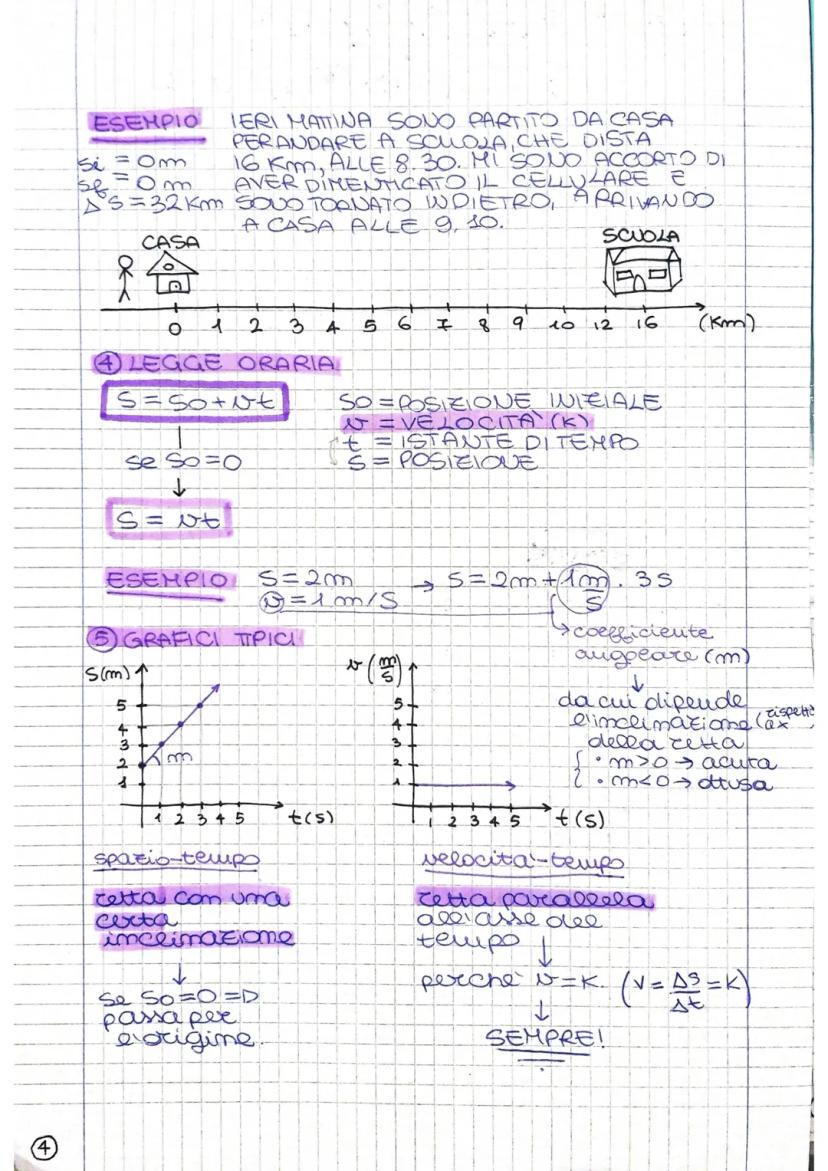 ESEMPIO IERI MATTINA SONO PARTITO DA CASA
PER ANDARE A SCUOLA, CHE DISTA
si = 0m 16 Km, ALLE 8.30. MI SONO ACCORTO DI
sf = 0m AVER DIMENTICATO IL CELLULARE E
ΔS = 32 Km SONO TORNATO INDIETRO, ARRIVANDO
A CASA ALLE 9,10.
CASA SCUOLA
0 1 2 3 4 5 6 7 8 9 10 12 16 (Km)
④ LEGGE ORARIA
S = So + vt So = POSIZIONE INIZIALE
v = VELOCITA' (K)
t = ISTANTE DI TEMPO
se So = 0 S = POSIZIONE
↓
S = vt
ESEMPIO S = 2m → S = 2m + 1m/s · 3s
v = 1 m/s
↳ coefficiente
angolare (m)
↓
da cui dipende
l'inclinazione (rispetto ax)
della retta
· m>0 → acuta
· m<0 → ottusa
⑤ GRAFICI TIPICI
S(m)
5
4
3
2 m
1
1 2 3 4 5 t(s)
v (m/s)
5
4
3
2
1
1 2 3 4 5 t(s)
spazio-tempo
retta con una
certa
inclinazione
↓
se So = 0 =D
passa per
l'origine.
velocità-tempo
retta parallela
all'asse del
tempo ↓
perché v = K. (V = ΔS/Δt = K)
↓
SEMPRE!
④